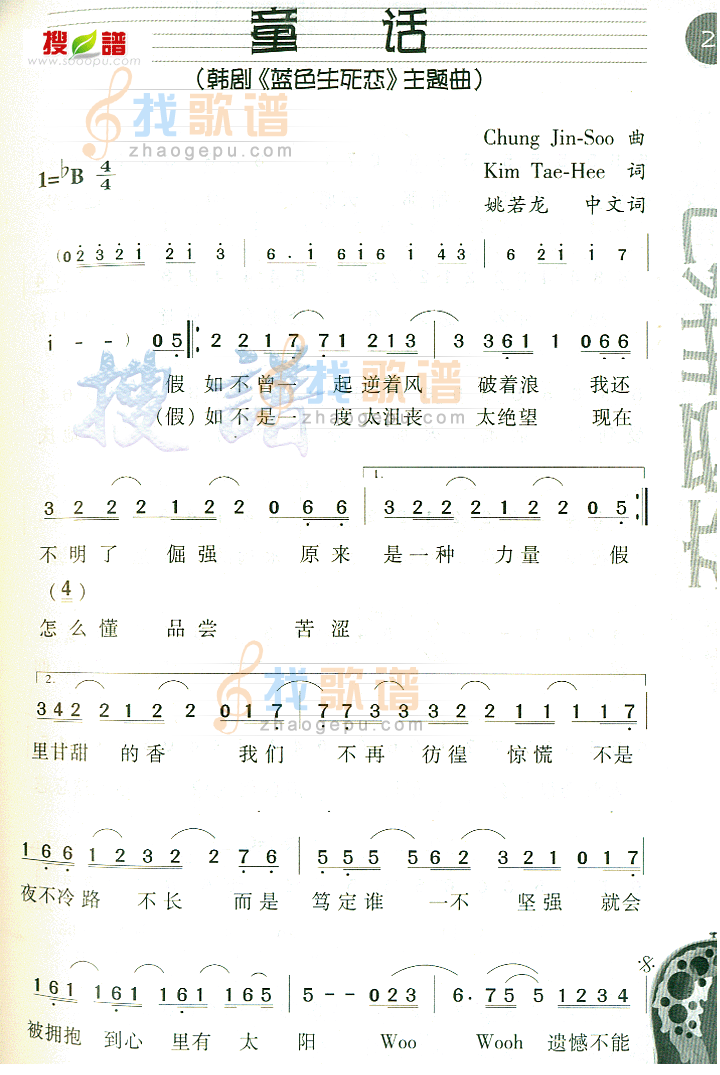 童 话
搜谱
www.sooopu.com
2
(韩剧《蓝色生死恋》主题曲)
找歌谱
zhaogepu.com
Chung Jin-Soo 曲
Kim Tae-Hee 词
姚若龙 中文词
1=♭B 4/4
(0 2 3 2 1 2 1 3 | 6 . 1 6 1 6 1 4 3 | 6 2 1 1 7
1 - - ) 0 5 ‖: 2 2 1 7 7 1 2 1 3 | 3 3 6 1 1 0 6 6
假 如不曾一 起逆着风 破着浪 我还
(假)如不是一 度太沮丧 太绝望 现在
搜譜
找歌谱
zhaogepu.com
1.
3 2 2 2 1 2 2 0 6 6 | 3 2 2 2 1 2 2 0 5 :‖
不明了 倔强 原来 是一种 力量 假
(4)
怎么懂 品尝 苦涩
找歌谱
zhaogepu.com
2.
3 4 2 2 1 2 2 0 1 7 | 7 7 3 3 3 3 2 2 1 1 1 1 7
里甘甜 的香 我们 不再 彷徨 惊慌 不是
1 6 6 1 2 3 2 2 7 6 | 5 5 5 5 6 2 3 2 1 0 1 7
夜不冷路 不长 而是 笃定谁 一不 坚强 就会
1 6 1 1 6 1 1 6 1 1 6 5 | 5 - - 0 2 3 | 6 . 7 5 5 1 2 3 4
被拥抱 到心 里有 太 阳 Woo Wooh 遗憾不能